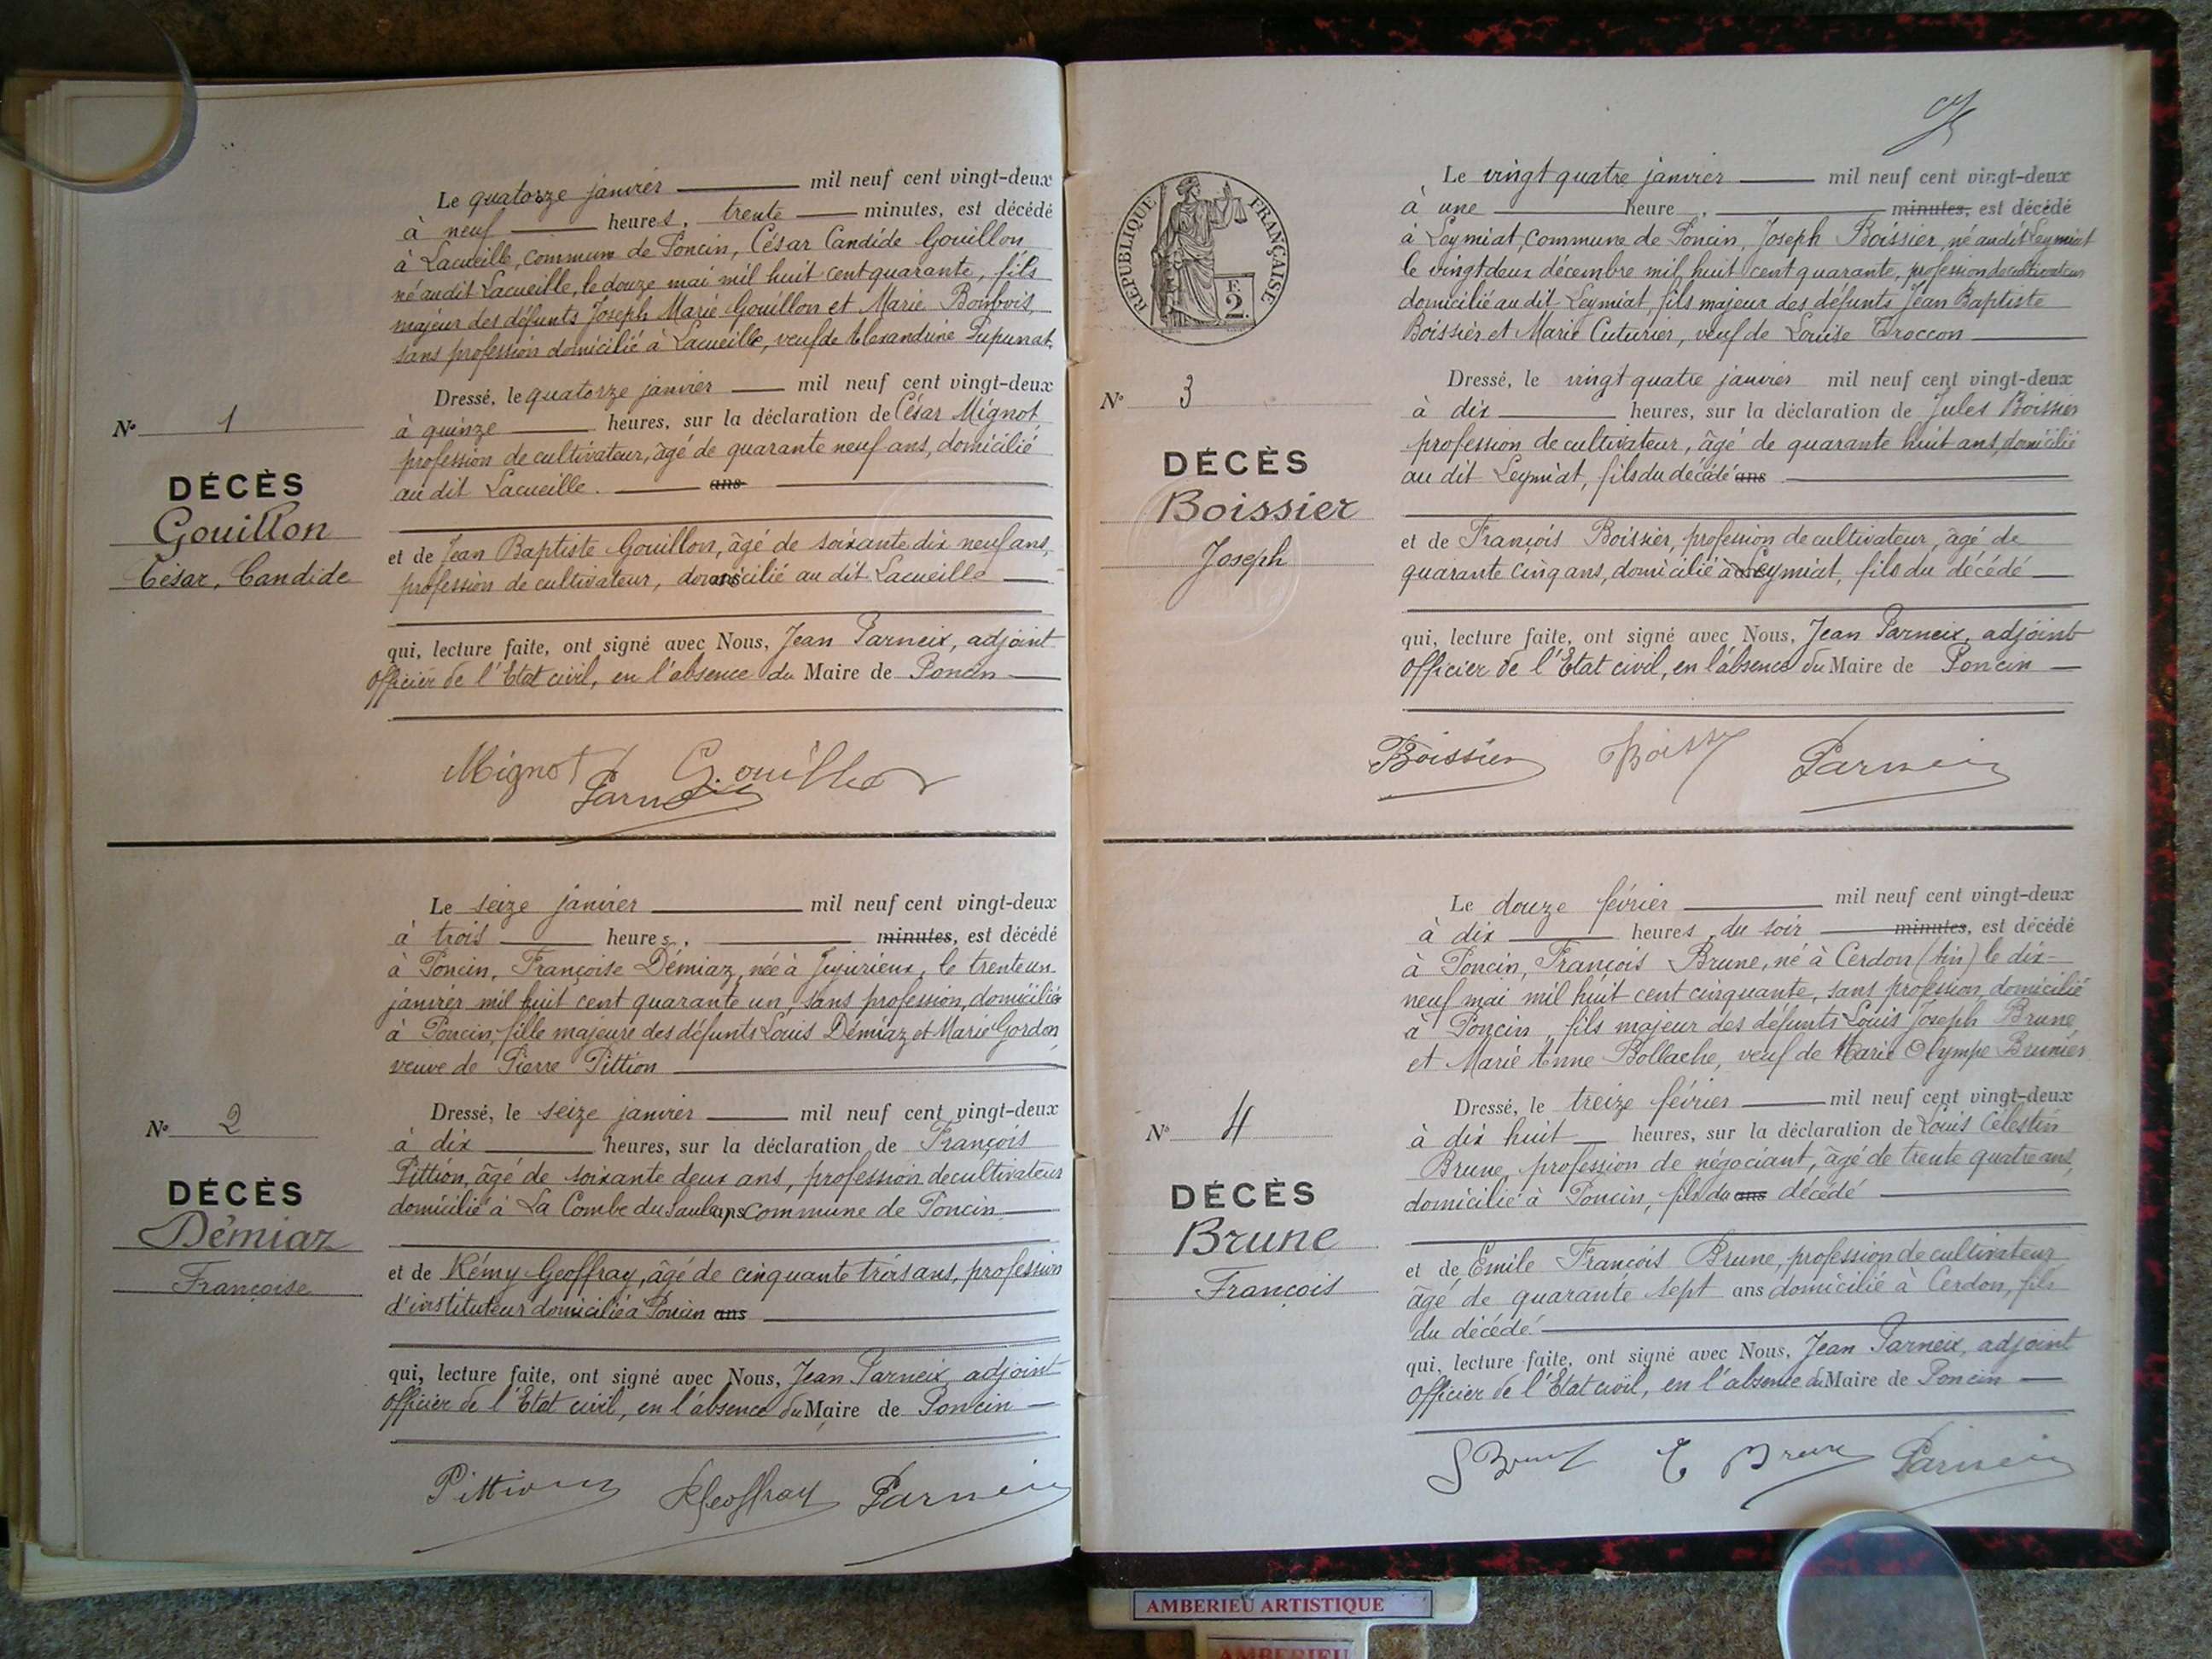 Le quatorze janvier mil neuf cent vingt-deux
à neuf heures, trente minutes, est décédé
à Lacueille, commune de Poncin, César Candide Gouillon
né audit Lacueille, le douze mai mil huit cent quarante, fils
majeur des défunts Joseph Marie Gouillon et Marie Bombois,
sans profession domicilié à Lacueille, veuf de Alexandrine Pupunat.
Dressé, le quatorze janvier mil neuf cent vingt-deux
à quinze heures, sur la déclaration de César Mignot,
profession de cultivateur, âgé de quarante neuf ans, domicilié
au dit Lacueille. ans
et de Jean Baptiste Gouillon, âgé de soixante dix neuf ans,
profession de cultivateur, domicilié au dit Lacueille
qui, lecture faite, ont signé avec Nous, Jean Parneix, adjoint
Officier de l'Etat civil, en l'absence du Maire de Poncin
N° 1
DÉCÈS
Gouillon
César, Candide
Mignot Gouillon
Parneix
Le seize janvier mil neuf cent vingt-deux
à trois heures, minutes, est décédé
à Poncin, Françoise Démiaz, née à Jujurieux, le trente un
janvier mil huit cent quarante un, sans profession, domiciliée
à Poncin, fille majeure des défunts Louis Démiaz et Marie Gordon
veuve de Pierre Pittion
Dressé, le seize janvier mil neuf cent vingt-deux
à dix heures, sur la déclaration de François
Pittion, âgé de soixante deux ans, profession de cultivateur
domicilié à La Combe du commune de Poncin
et de Rémy Geoffray, âgé de cinquante trois ans, profession
d'instituteur domicilié à Poncin ans
qui, lecture faite, ont signé avec Nous, Jean Parneix, adjoint
Officier de l'Etat civil, en l'absence du Maire de Poncin
N° 2
DÉCÈS
Démiaz
Françoise
Pittion RGeoffray Parneix
RÉPUBLIQUE FRANÇAISE
F.
2.
Le vingt quatre janvier mil neuf cent vingt-deux
à une heure, minutes, est décédé
à Leymiat, commune de Poncin, Joseph Boissier, né au dit Leymiat
le vingt deux décembre mil huit cent quarante, profession de cultivateur
domicilié au dit Leymiat, fils majeur des défunts Jean Baptiste
Boissier et Marie Cuturier, veuf de Louise Troccon
Dressé, le vingt quatre janvier mil neuf cent vingt-deux
à dix heures, sur la déclaration de Jules Boissier
profession de cultivateur, âgé de quarante huit ans, domicilié
au dit Leymiat, fils du décédé ans
et de François Boissier, profession de cultivateur, âgé de
quarante cinq ans, domicilié à Leymiat, fils du décédé
qui, lecture faite, ont signé avec Nous, Jean Parneix, adjoint
Officier de l'Etat civil, en l'absence du Maire de Poncin
N° 3
DÉCÈS
Boissier
Joseph
Boissier Parneix
Le douze février mil neuf cent vingt-deux
à dix heures du soir minutes, est décédé
à Poncin, François Brune, né à Cerdon (Ain) le dix-
neuf mai mil huit cent cinquante, sans profession, domicilié
à Poncin, fils majeur des défunts Louis Joseph Brune
et Marie Anne Bollache, veuf de Marie Olympe Brunier
Dressé, le treize février mil neuf cent vingt-deux
à dix huit heures, sur la déclaration de Louis Célestin
Brune, profession de négociant, âgé de trente quatre ans,
domicilié à Poncin, fils du ans décédé
et de Emile François Brune, profession de cultivateur
âgé de quarante sept ans domicilié à Cerdon, fils
du décédé
qui, lecture faite, ont signé avec Nous, Jean Parneix, adjoint
Officier de l'Etat civil, en l'absence du Maire de Poncin
N° 4
DÉCÈS
Brune
François
E Brune Parneix
AMBERIEU ARTISTIQUE
AMBERIEU